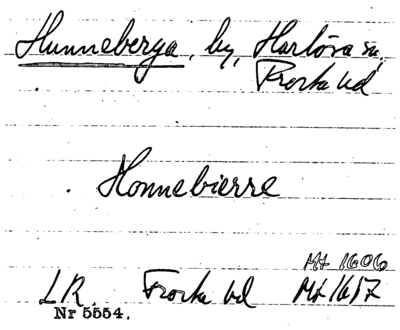 Hunneberga, by, Harlösa sn,
Frosta hd
Honnebierre
Mt 1606
LR. Frosta hd Mt 1617
Nr 5554.